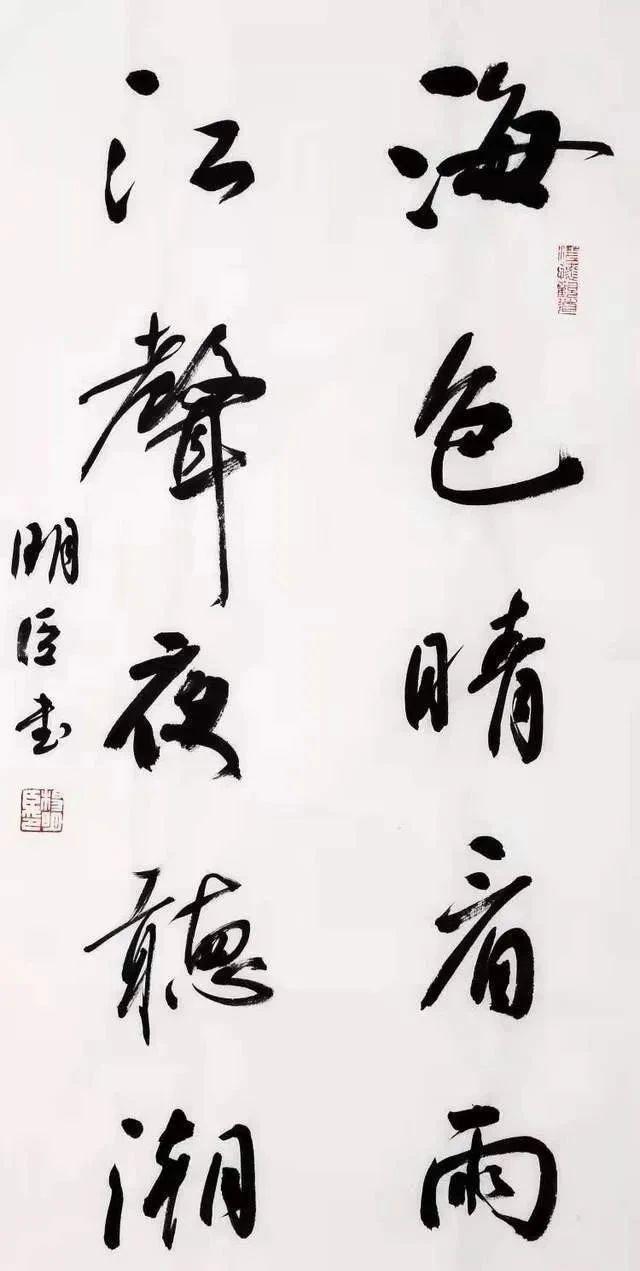 海色晴看雨
江聲夜聽潮
明臣书